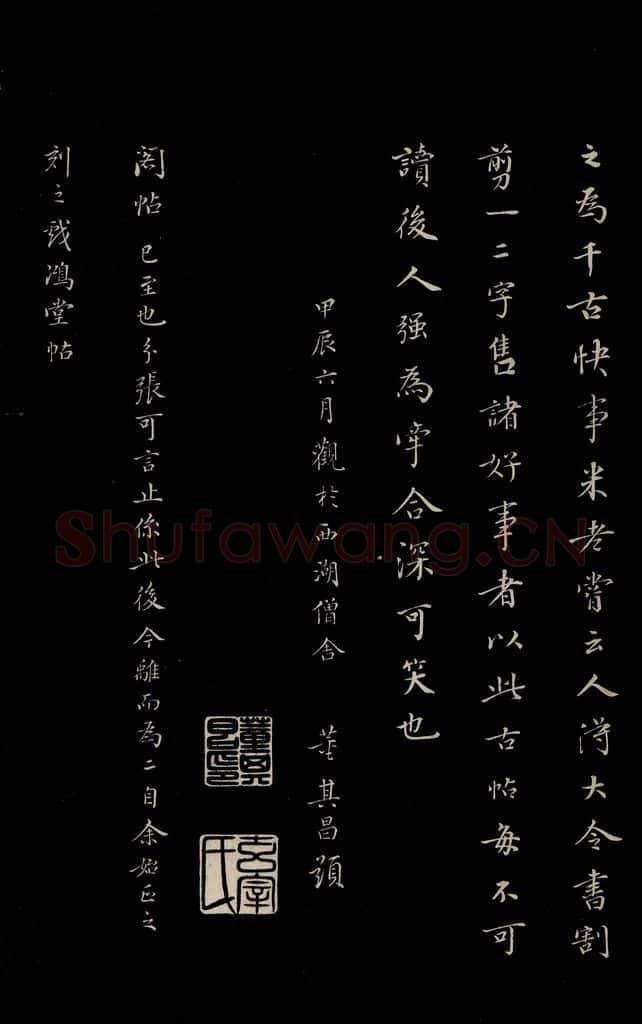 之為千古快事米老嘗云人得大令書割
剪一二字售諸好事者以此古帖每不可
讀後人强為牽合深可笑也
甲辰六月觀於西湖僧舍 董其昌題
閣帖已至也分張可言止係此後今離而為二自余始正之
刻之戲鴻堂帖
董其昌印
玄宰氏
Shufawang.CN